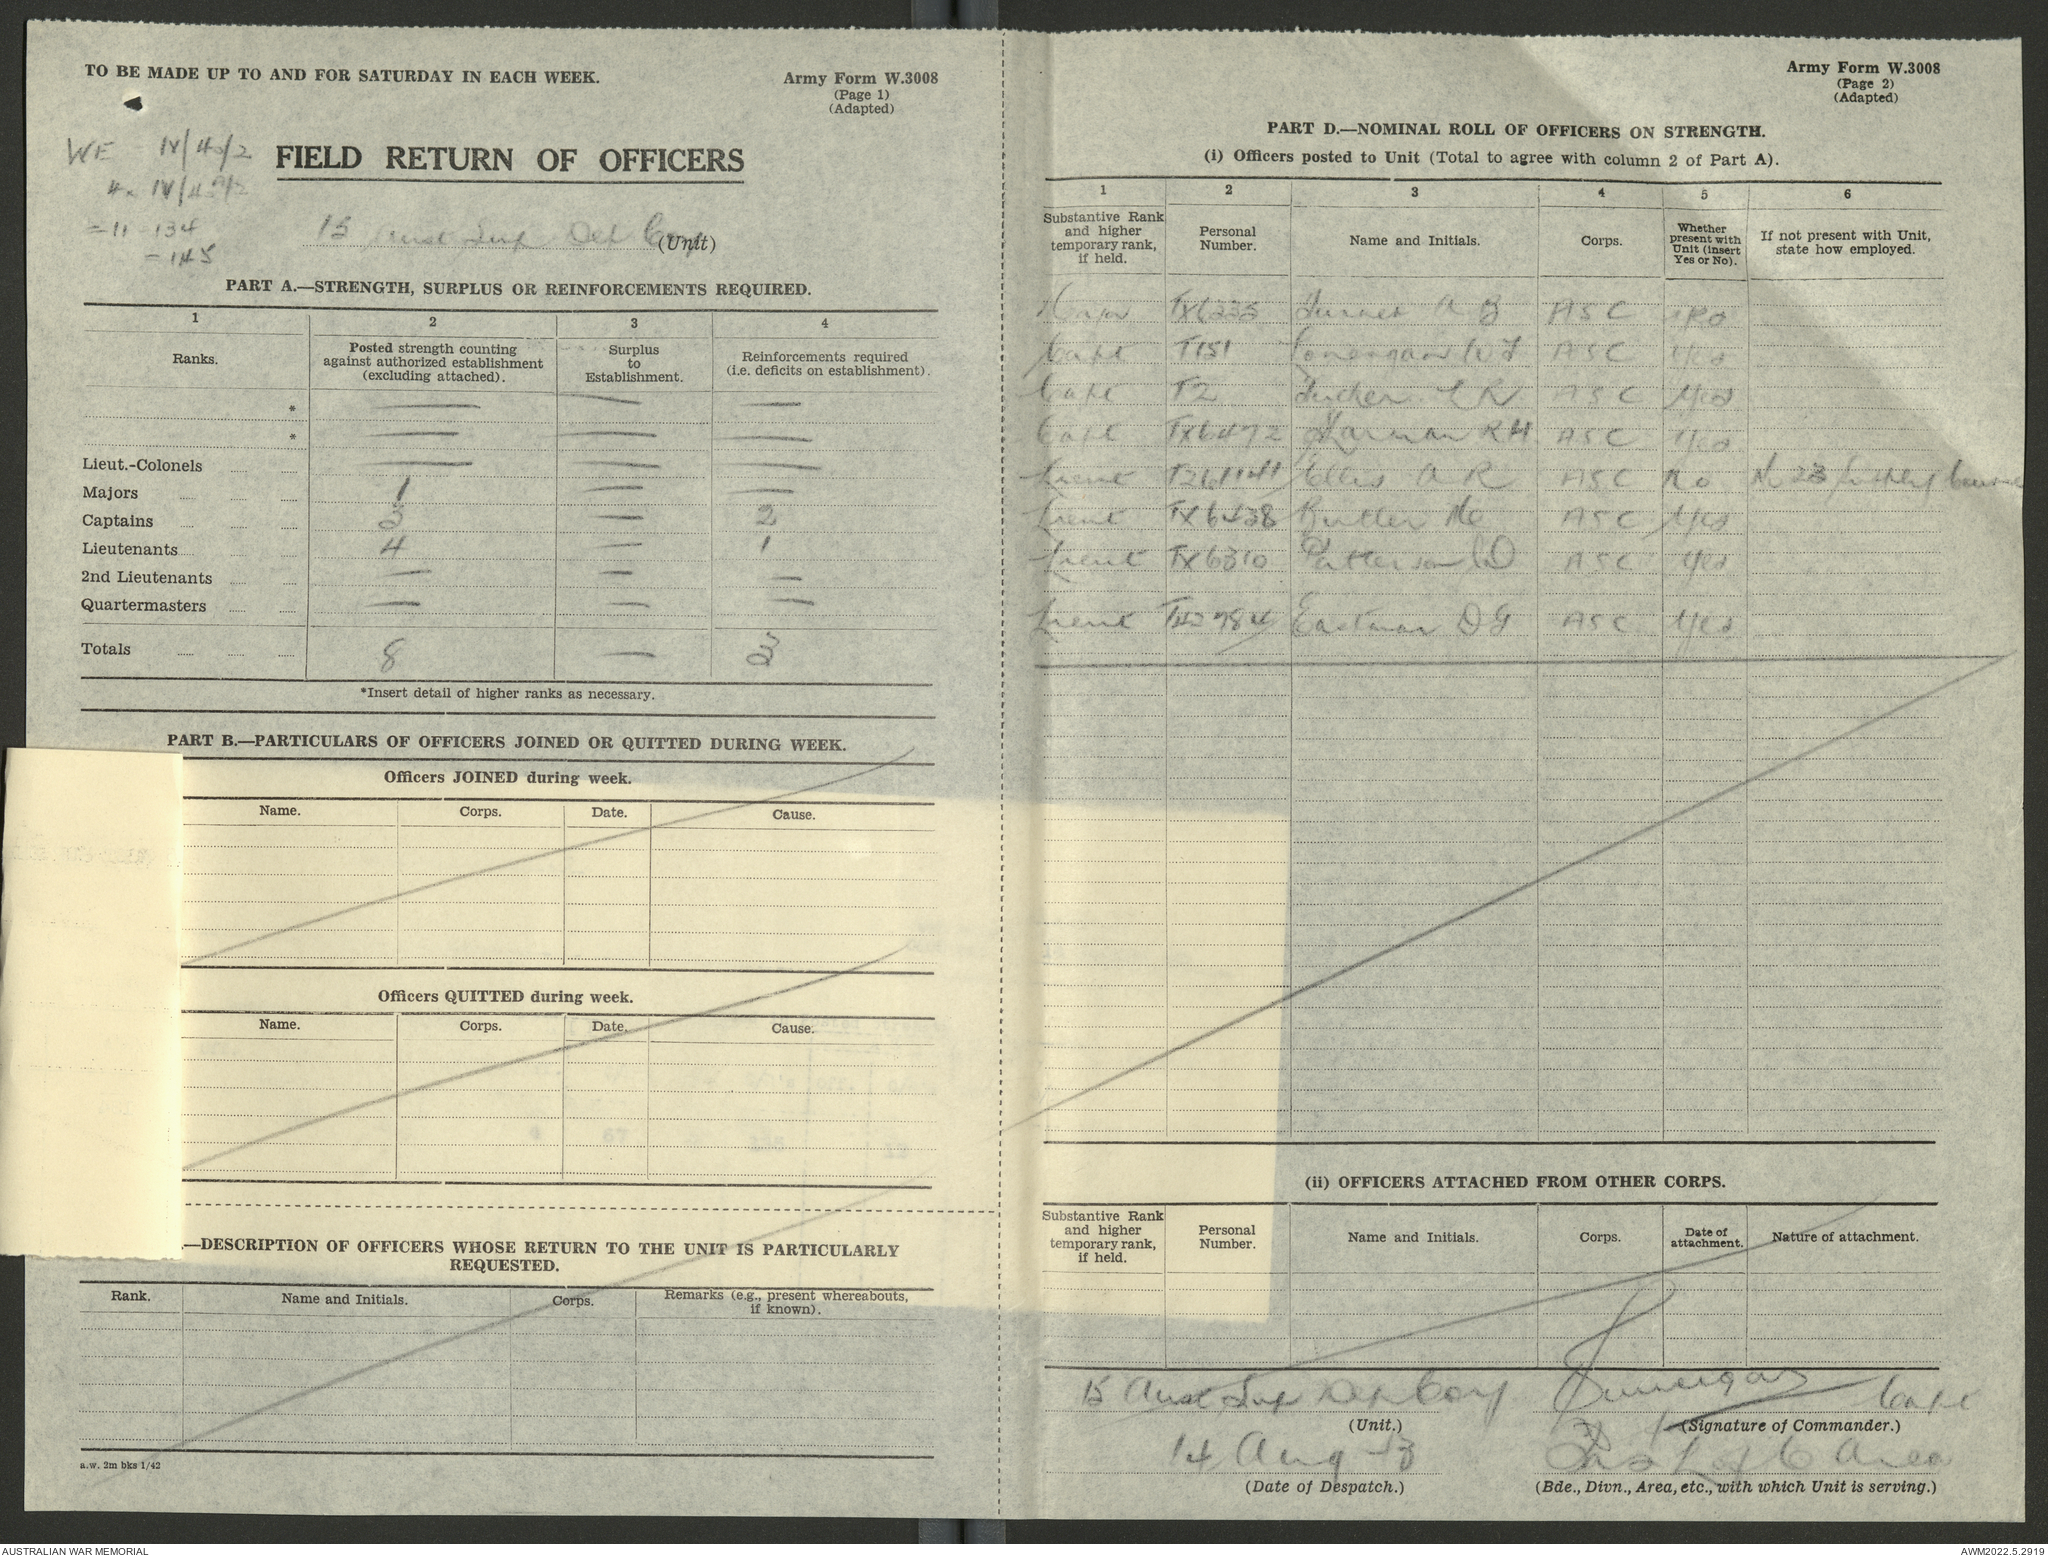 TO BE MADE UP TO AND FOR SATURDAY IN EACH WEEK.
Army Form W.3008
(Page 1)
(Adapted)
WE IV/
FIELD RETURN OF OFFICERS
= 11 - 134
- 145
15 Aust Sup Dep Coy (Unit)
PART A.—STRENGTH, SURPLUS OR REINFORCEMENTS REQUIRED.
1 2 3 4
Ranks. Posted strength counting against authorized establishment (excluding attached). Surplus to Establishment. Reinforcements required (i.e. deficits on establishment).
* — — —
* — — —
Lieut.-Colonels — — —
Majors 1 — —
Captains 3 — 2
Lieutenants 4 — 1
2nd Lieutenants — — —
Quartermasters — — —
Totals 8 — 3
*Insert detail of higher ranks as necessary.
PART B.—PARTICULARS OF OFFICERS JOINED OR QUITTED DURING WEEK.
Officers JOINED during week.
Name. Corps. Date. Cause.
Officers QUITTED during week.
Name. Corps. Date. Cause.
.—DESCRIPTION OF OFFICERS WHOSE RETURN TO THE UNIT IS PARTICULARLY
REQUESTED.
Rank. Name and Initials. Corps. Remarks (e.g., present whereabouts, if known).
a.w. 2m bks 1/42
Army Form W.3008
(Page 2)
(Adapted)
PART D.—NOMINAL ROLL OF OFFICERS ON STRENGTH.
(i) Officers posted to Unit (Total to agree with column 2 of Part A).
1 2 3 4 5 6
Substantive Rank and higher temporary rank, if held. Personal Number. Name and Initials. Corps. Whether present with Unit (insert Yes or No). If not present with Unit, state how employed.
Major TX6235 Turner A B ASC
Capt T151 ASC Yes
Capt T2 Tucker L R ASC Yes
Capt TX6472 Harman R H ASC Yes
Lieut Ellis A R ASC No No 23
Lieut TX6438 Butler ASC Yes
Lieut TX6310 Patterson ASC Yes
Lieut T42784 Eastman D G ASC Yes
(ii) OFFICERS ATTACHED FROM OTHER CORPS.
Substantive Rank and higher temporary rank, if held. Personal Number. Name and Initials. Corps. Date of attachment. Nature of attachment.
15 Aust Sup Dep Coy Capt
(Unit.) (Signature of Commander.)
14 Aug 43 L of C Area
(Date of Despatch.) (Bde., Divn., Area, etc., with which Unit is serving.)
AUSTRALIAN WAR MEMORIAL
AWM2022.5.2919